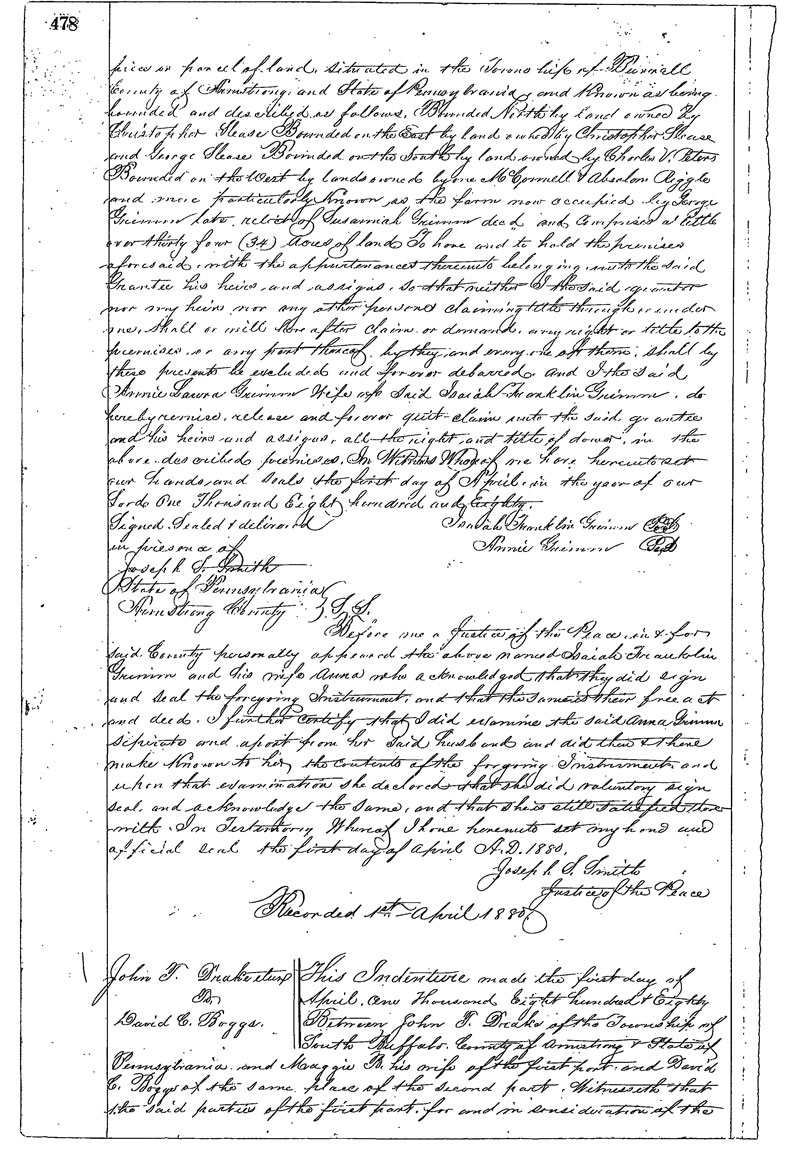 478
piece or parcel of land, situated in the Township of Burrell
County of Armstrong and State of Pennsylvania, and Known as being
bounded and described as follows, Bounded North by land owned by
Christopher Slease Bounded on the East by land owned by Christopher Slease
and George Slease Bounded on the South by land owned by Charles V. Peters
Bounded on the West by lands owned by one McConnell & Absalom
and more particularly Known as the farm now occupied by George
Grimm late relict of Susannah Grimm decd and Comprises a little
over thirty four (34) Acres of land To have and to hold the premises
aforesaid, with the appurtenances thereunto belonging, unto the said
Grantee his heirs, and assigns, so that neither I the said grantor
nor my heirs nor any other persons claiming title through or under
me, shall or will hereafter claim or demand, any right or title to the
premises, or any part thereof, by they and every one of them, shall by
these presents be excluded and forever debarred. And I the said
Annie Laura Grimm Wife of Said Isaiah Franklin Grimm, do
hereby remise, release and forever quit claim unto the said grantee
and his heirs and assigns, all the right and title of dower, in the
above described premises. In Witness Whereof we have hereunto set
our hands and seals the first day of April in the year of our
Lord One Thousand Eight hundred and Eighty.
Signed Sealed & delivered Isaiah Franklin Grimm
in presence of Annie Grimm
Joseph S. Smith
State of Pennsylvania
Armstrong County } S.S.
Before me a Justice of the Peace, in & for
said County personally appeared the above named Isaiah Franklin
Grimm and his wife Anna who acknowledged that they did sign
and seal the forgoing Instrument, and that the same is their free act
and deed. I further certify that I did examine the said Anna Grimm
seperate and apart from her said husband and did then & there
make Known to her the contents of the forgoing Instrument, and
upon that examination she declared that she did voluntary sign
seal, and acknowledge the same, and that she is still satisfied there
with. In Testimony Whereof I have hereunto set my hand and
official seal the first day of April A.D. 1880.
Joseph S. Smith
Justice of the Peace
Recorded 1st April 1880
John T. Drake et ux
To
David C. Boggs.
This Indenture made the first day of
April, One Thousand Eight hundred & Eighty
Between John T. Drake of the Township of
South Buffalo County of Armstrong & State of
Pennsylvania and Maggie B. his wife of the first part, and David
C. Boggs of the same place of the second part. Witnesseth that
the said parties of the first part, for and in consideration of the